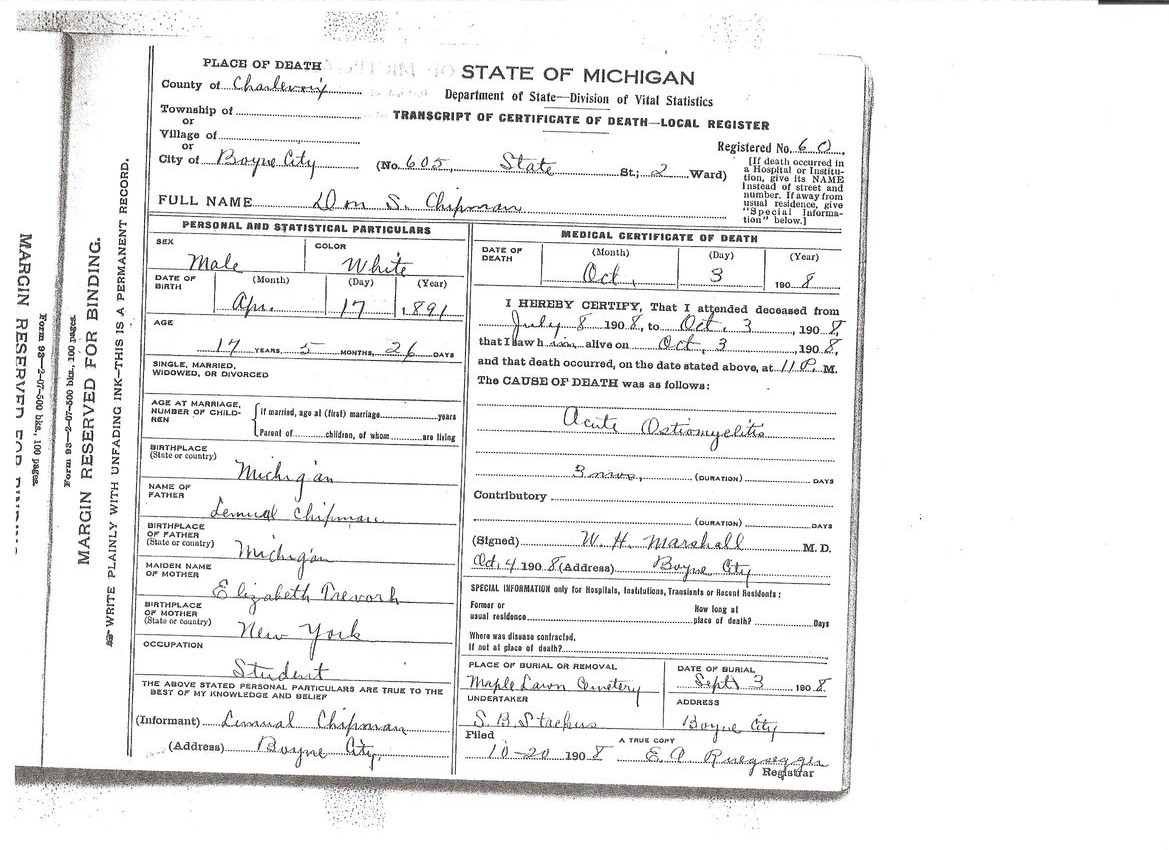 PLACE OF DEATH
County of Charlevoix
Township of
or
Village of
or
City of Boyne City
STATE OF MICHIGAN
Department of State—Division of Vital Statistics
TRANSCRIPT OF CERTIFICATE OF DEATH—LOCAL REGISTER
Registered No. 60
(No. 605, State St.; 2 Ward)
[If death occurred in
a Hospital or Institu-
tion, give its NAME
instead of street and
number. If away from
usual residence, give
"Special Informa-
tion" below.]
FULL NAME Don S. Chipman
PERSONAL AND STATISTICAL PARTICULARS
SEX Male
COLOR White
DATE OF BIRTH
(Month) (Day) (Year)
Apr. 17 1891
AGE
17 YEARS, 5 MONTHS, 26 DAYS
SINGLE, MARRIED,
WIDOWED, OR DIVORCED
AGE AT MARRIAGE,
NUMBER OF CHILD-
REN
If married, age at (first) marriage years
Parent of children, of whom are living
BIRTHPLACE
(State or country) Michigan
NAME OF
FATHER Lemual Chipman
BIRTHPLACE
OF FATHER
(State or country) Michigan
MAIDEN NAME
OF MOTHER Elizabeth
BIRTHPLACE
OF MOTHER
(State or country) New York
OCCUPATION
Student
THE ABOVE STATED PERSONAL PARTICULARS ARE TRUE TO THE
BEST OF MY KNOWLEDGE AND BELIEF
(Informant) Limual Chipman
(Address) Boyne City,
MEDICAL CERTIFICATE OF DEATH
DATE OF
DEATH
(Month) (Day) (Year)
Oct, 3 1908
I HEREBY CERTIFY, That I attended deceased from
July 8 1908, to Oct, 3, 1908,
that I saw him alive on Oct, 3, 1908,
and that death occurred, on the date stated above, at 11 P. M.
The CAUSE OF DEATH was as follows:
Acute Ostiomyelitis
3 mos, (DURATION) DAYS
Contributory
(DURATION) DAYS
(Signed) W. H. Marshall M. D.
Oct, 4 1908 (Address) Boyne City
SPECIAL INFORMATION only for Hospitals, Institutions, Transients or Recent Residents:
Former or
usual residence
How long at
place of death? Days
Where was disease contracted,
If not at place of death?
PLACE OF BURIAL OR REMOVAL
Maple Lawn Cemetery
DATE OF BURIAL
Sept 3 1908
UNDERTAKER
S. B. Stackus
ADDRESS
Boyne City
Filed
10-20 1908
A TRUE COPY
E. A. Ruegsegger
Registrar
WRITE PLAINLY WITH UNFADING INK—THIS IS A PERMANENT RECORD.
MARGIN RESERVED FOR BINDING.
Form 93—2-07-500 bks., 100 pages.
Form 93—2-07-500 bks., 100 pages.
MARGIN RESERVED FOR